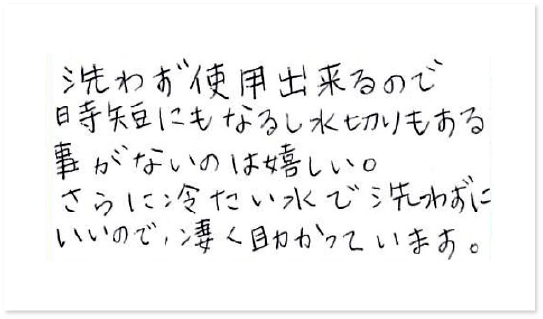 洗わず使用出来るので
時短にもなるし水切りもする
事がないのは嬉しい。
さらに冷たい水で洗わずに
いいので、凄く助かっています。